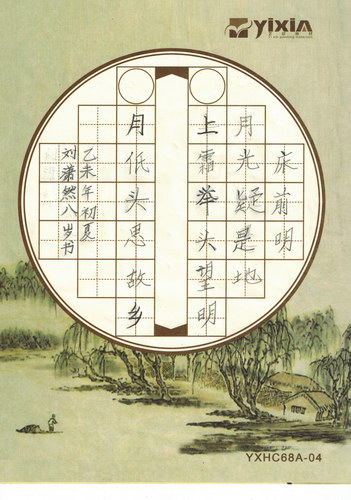 YiXiA
床前明
月光疑是地
上霜举头望明
月低头思故乡
乙未年初夏
刘潇然八岁书
YXHC68A-04